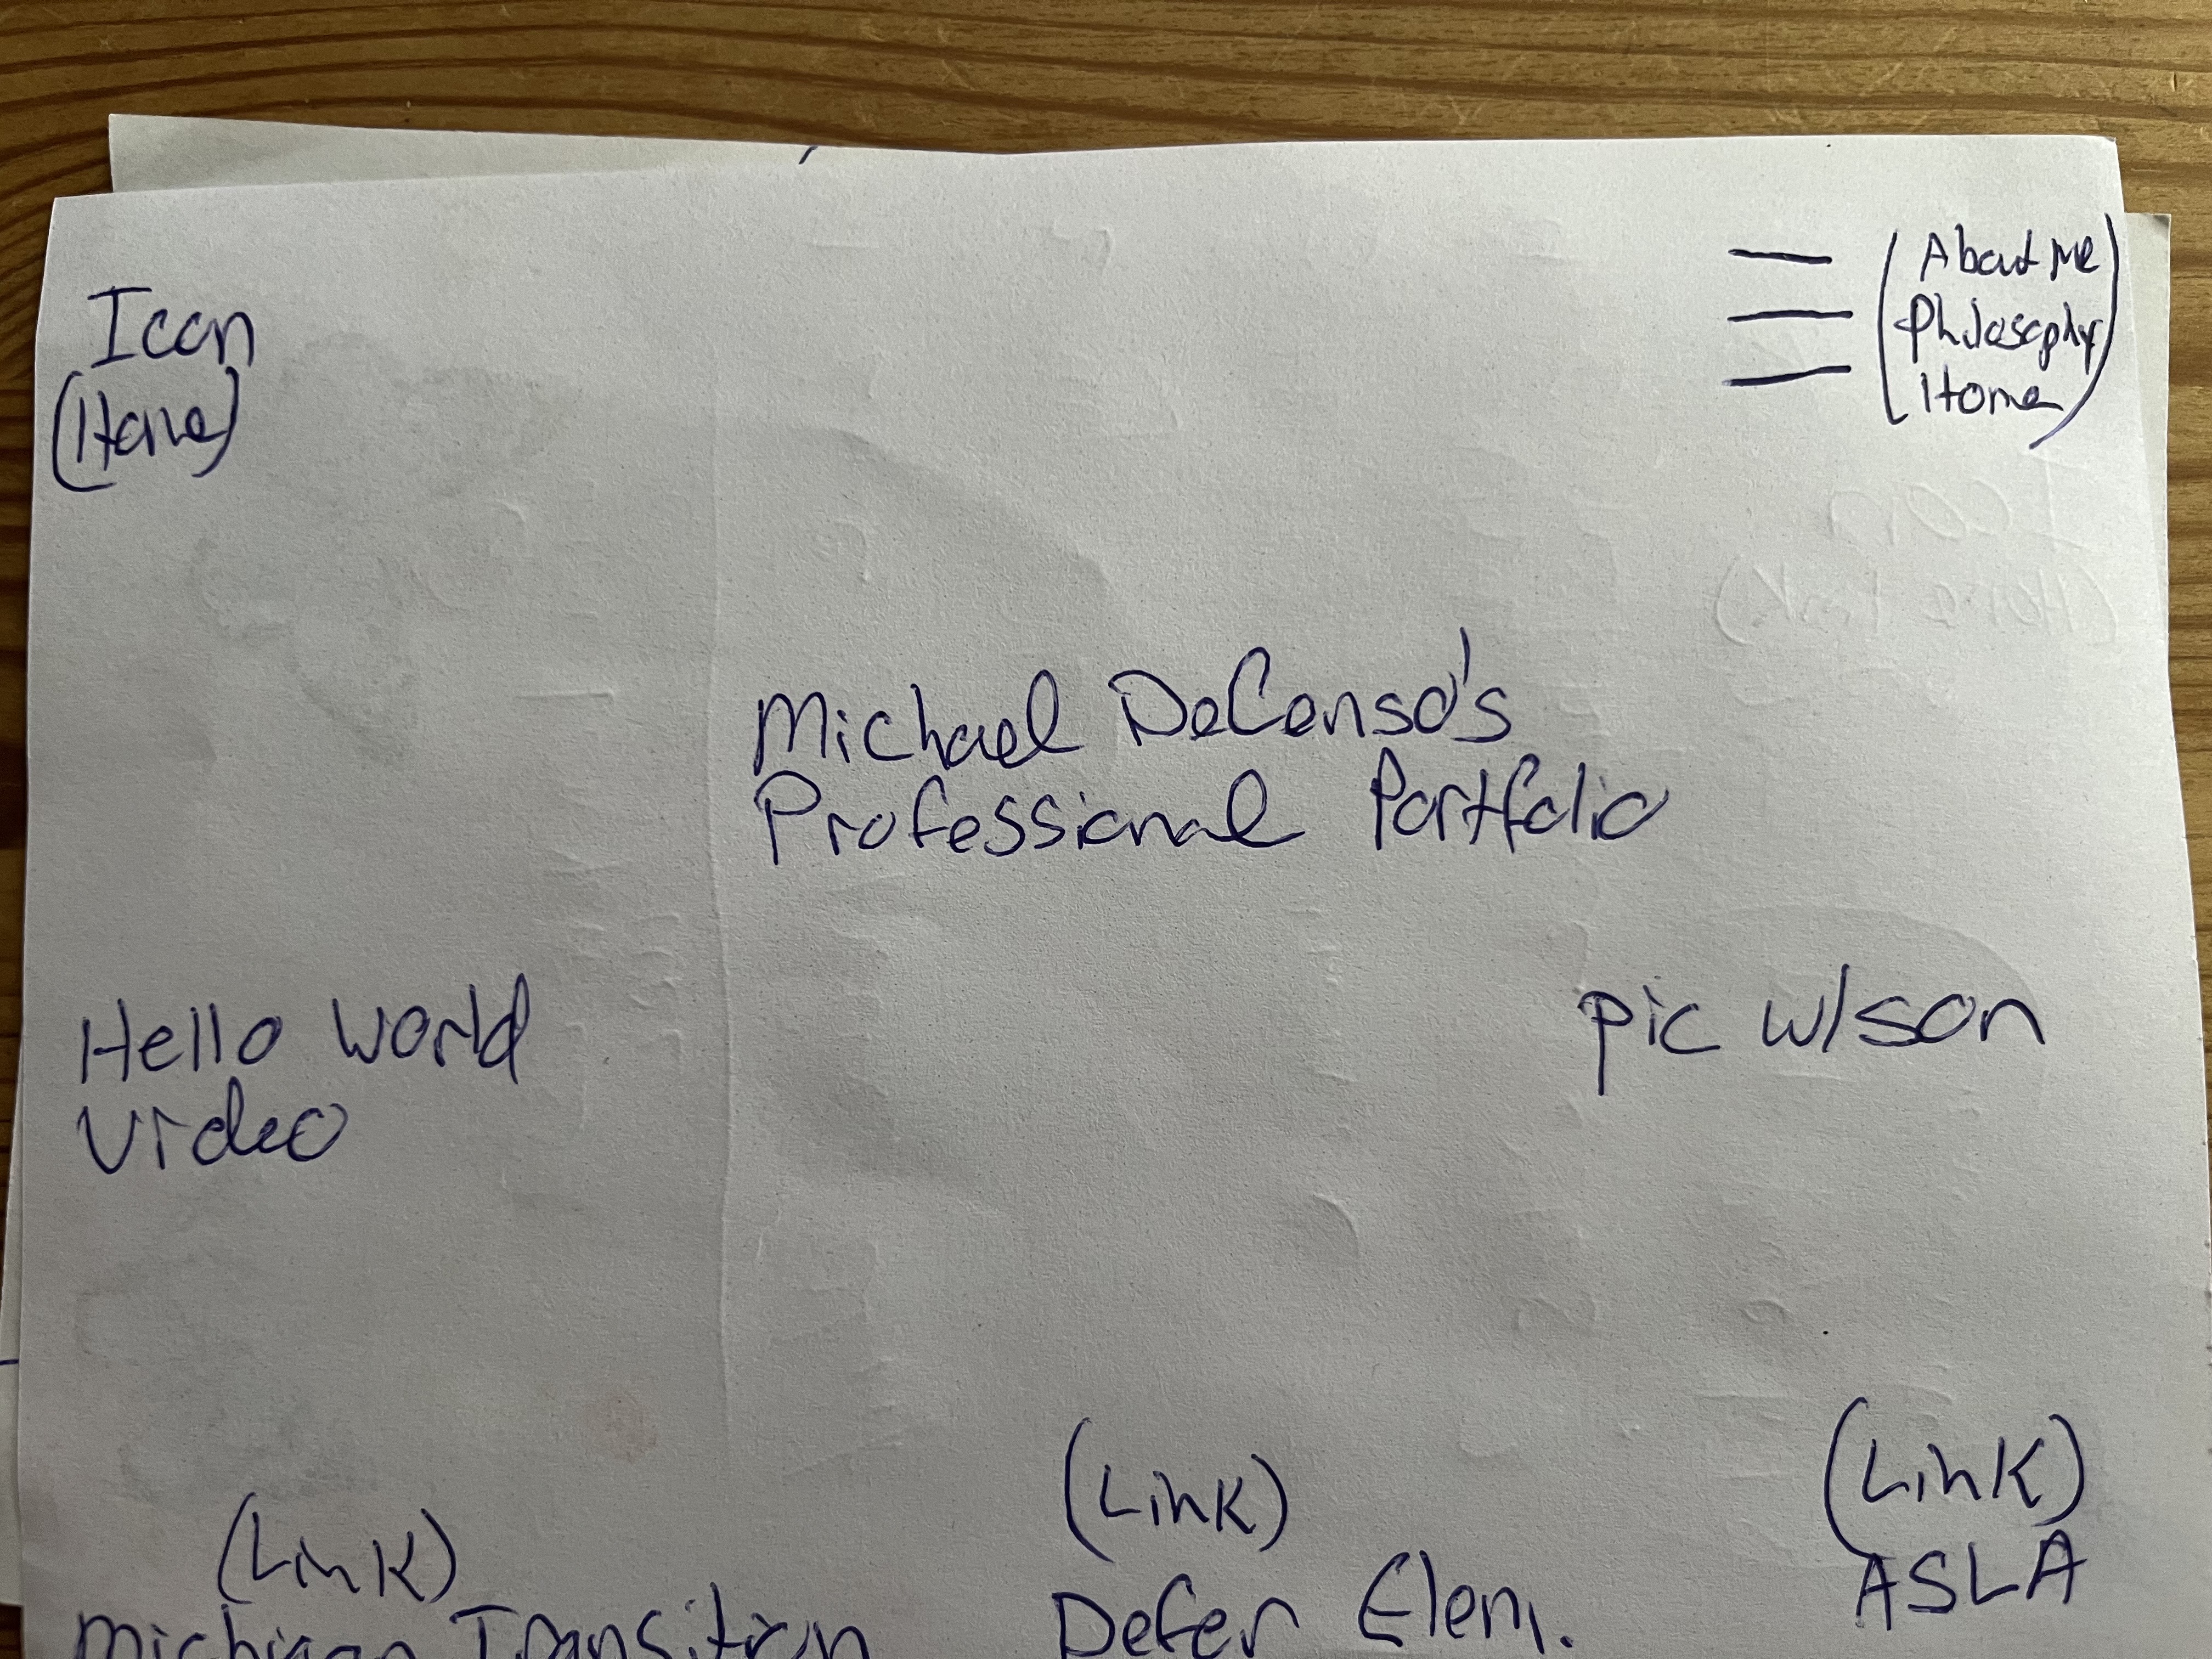 Icon
(Home)
(About Me
Philosophy
Home)
Michael DeCenso's
Professional Portfolio
Hello World
Video
pic w/son
(Link)
Michigan Transition
(Link)
Defer Elem.
(Link)
ASLA